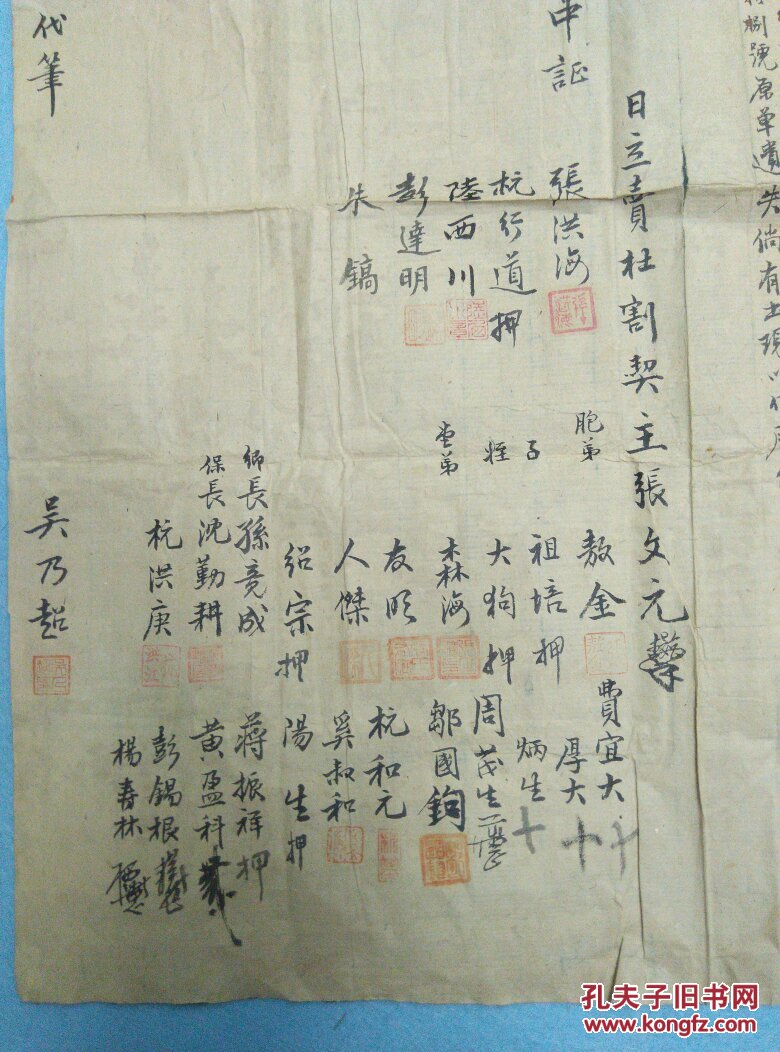 捌號原單遺失倘有
日立賣杜割契主張文元
中証
張洪海
杭行道押
陸西川
彭達明
朱鎬
胞弟
敖金
子
祖培押
姪
大狗押
森海
友明
人傑
紹宗押
鄉長孫竟成
保長沈勤耕
杭洪庚
費宜大
厚大
炳生
周茂生
鄒國鈞
杭和元
奚叔和
陽生押
蔣振祥押
黃盈科
彭錫根
楊春林
代筆
吳乃超
孔夫子旧书网
www.kongfz.com